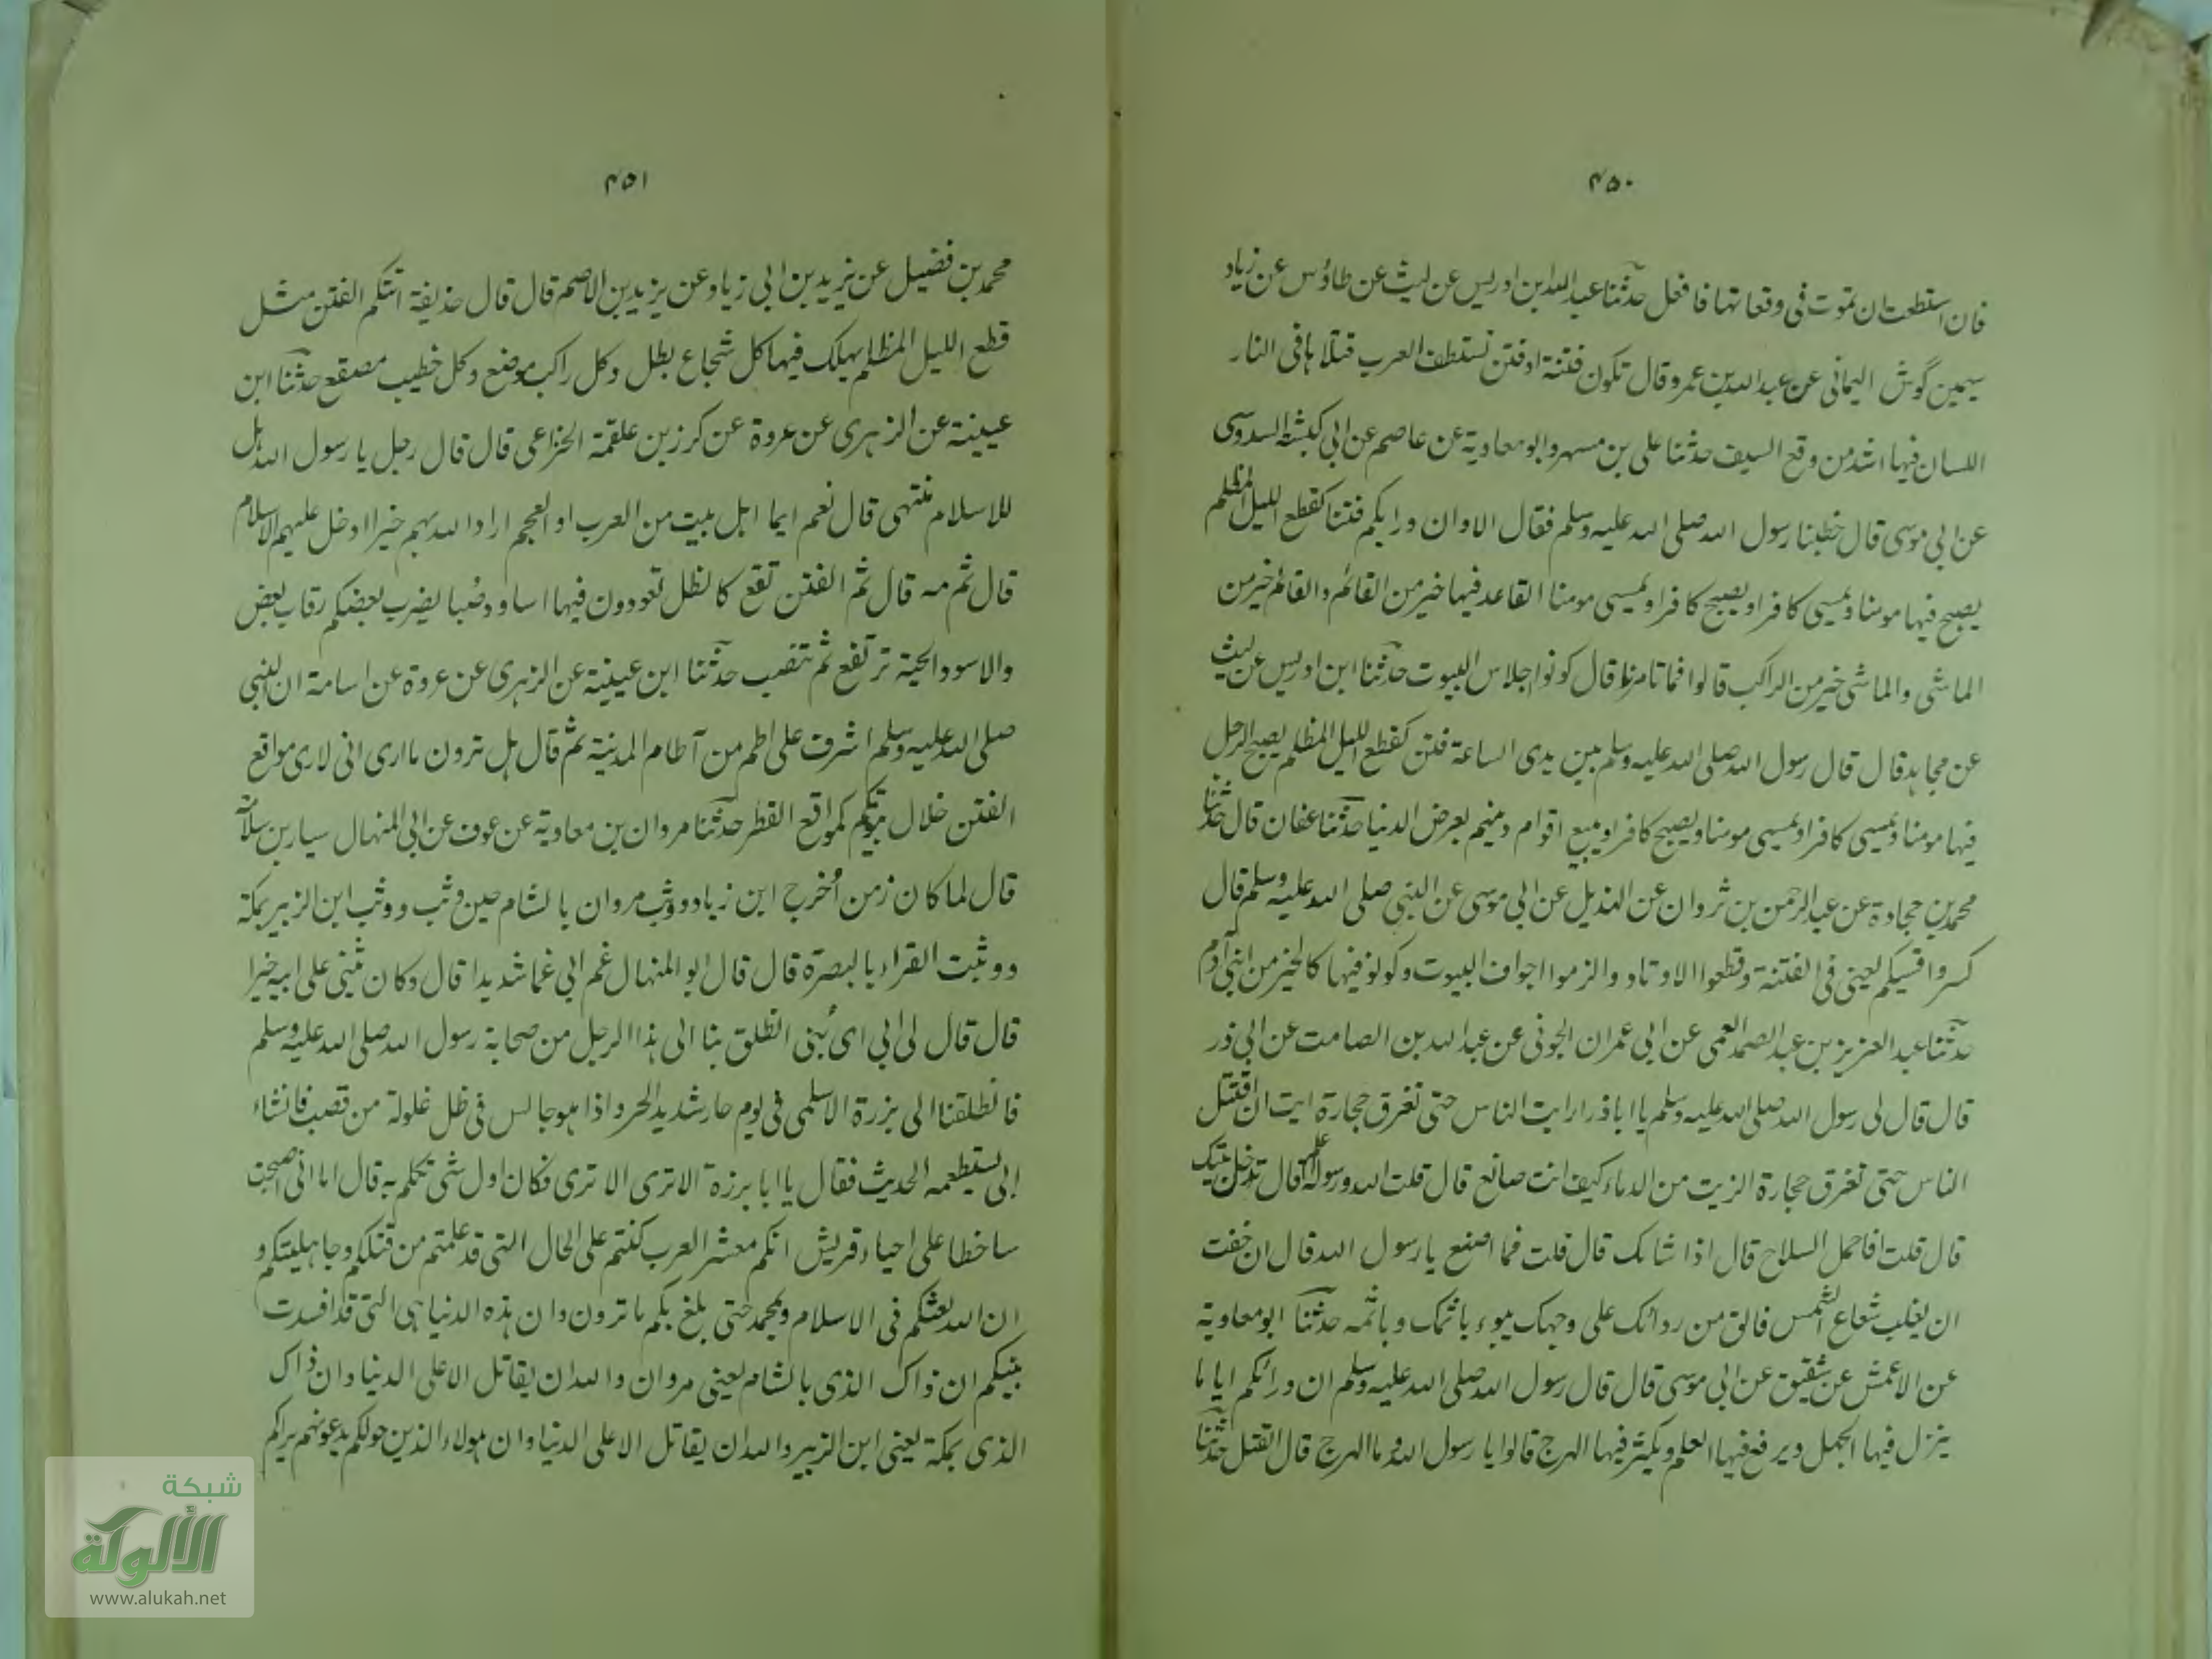 ٤٥٠
فان استطعت ان تموت فى وقعاتها فافعل حدثنا عبد الله ابن ادريس عن ليث عن طاؤس عن زياد
سيمين گوش اليمانى عن عبد الله بن عمرو قال تكون فتنة او فتن تستنظف العرب قتلاها فى النار
اللسان فيها اشد من وقع السيف حدثنا على بن مسهر وابو معاوية عن عاصم عن ابى كبشة السدوسى
عن ابى موسى قال خطبنا رسول الله صلى الله عليه وسلم فقال الا وان ورايكم فتنا كقطع الليل المظلم
يصبح فيها مومنا ويمسى كافرا ويصبح كافرا ويمسى مومنا القاعد فيها خير من القائم والقائم خير من
الماشى والماشى خير من الراكب قالوا فما تامرنا قال كونوا اجلاس البيوت حدثنا ابن ادريس عن ليث
عن مجاهد قال قال رسول الله صلى الله عليه وسلم بين يدى الساعة فتن كقطع الليل المظلم يصبح الرجل
فيها مومنا ويمسى كافرا ويمسى مومنا ويصبح كافرا ويبيع اقوام دينهم بعرض الدنيا حدثنا عفان قال حدثنا
محمد بن جحادة عن عبد الرحمن بن ثروان عن الهذيل عن ابى موسى عن النبى صلى الله عليه وسلم قال
كسروا قسيكم يعنى فى الفتنة وقطعوا الاوتاد والزموا اجواف البيوت وكونوا فيها كالخير من ابنى آدم
حدثنا عبد العزيز بن عبد الصمد العمى عن ابى عمران الجونى عن عبد الله بن الصامت عن ابى ذر
قال قال لى رسول الله صلى الله عليه وسلم يا اباذر ارايت الناس حتى تغرق حجارة ايت ان اقتتل
الناس حتى تغرق حجارة الزيت من الدماء كيف انت صانع قال قلت الله ورسوله اعلم قال تدخل بيتك
قال قلت افاحمل السلاح قال اذا شاك قال قلت فما اصنع يا رسول الله قال ان خفت
ان يغلب شعاع الشمس فالق من ردائك على وجهك يبوء باثمك وباثمه حدثنا ابو معاوية
عن الاعمش عن شقيق عن ابى موسى قال قال رسول الله صلى الله عليه وسلم ان ورائكم اياما
ينزل فيها الجهل ويرفع فيها العلم ويكثر فيها الهرج قالوا يا رسول الله وما الهرج قال القتل حدثنا
٤٥١
محمد بن فضيل عن يزيد بن ابى زياد عن يزيد بن الاصم قال قال حذيفة اتتكم الفتن مثل
قطع الليل المظلم يهلك فيها كل شجاع بطل وكل راكب موضع وكل خطيب مصقع حدثنا ابن
عيينة عن الزهرى عن عروة عن كرز بن علقمة الخزاعى قال قال رجل يا رسول الله هل
للاسلام منتهى قال نعم ايما اهل بيت من العرب او العجم اراد الله بهم خيرا ادخل عليهم الاسلام
قال ثم مه قال ثم الفتن تقع كالظل تعودون فيها اساود صُبا يضرب بعضكم رقاب بعض
والاسود الحية ترتفع ثم تنصب حدثنا ابن عيينة عن الزهرى عن عروة عن اسامة ان النبى
صلى الله عليه وسلم اشرف على اطم من آطام المدينة ثم قال هل ترون ما ارى انى لارى مواقع
الفتن خلال بيوتكم كمواقع القطر حدثنا مروان بن معاوية عن عوف عن ابى المنهال سيار بن سلامة
قال لما كان زمن اُخرج ابن زياد ووثب مروان بالشام حين وثب ووثب ابن الزبير بمكة
ووثبت القراء بالبصرة قال قال ابو المنهال غم ابى غما شديدا قال وكان يثنى على ابيه خيرا
قال قال لى ابى اى بُنى انطلق بنا الى هذا الرجل من صحابة رسول الله صلى الله عليه وسلم
فانطلقنا الى برزة الاسلمى فى يوم حار شديد الحر واذا هو جالس فى ظل علولة من قصب فانشاء
ابى يستطعمه الحديث فقال يا ابا برزة الا ترى الا ترى فكان اول شى تكلم به قال اما انى اصبحت
ساخطا على احياء قريش انكم معشر العرب كنتم على الحال التى قد علمتم من قتلكم وجاهليتكم و
ان الله نعشكم فى الاسلام وبمحمد حتى بلغ بكم ما ترون وان هذه الدنيا هى التى قد افسدت
بينكم ان ذاك الذى بالشام يعنى مروان والله ان يقاتل الا على الدنيا وان ذاك
الذى بمكة يعنى ابن الزبير والله ان يقاتل الا على الدنيا وان هولاء الذين حولكم يدعونهم براكم
شبكة
الألوكة
www.alukah.net